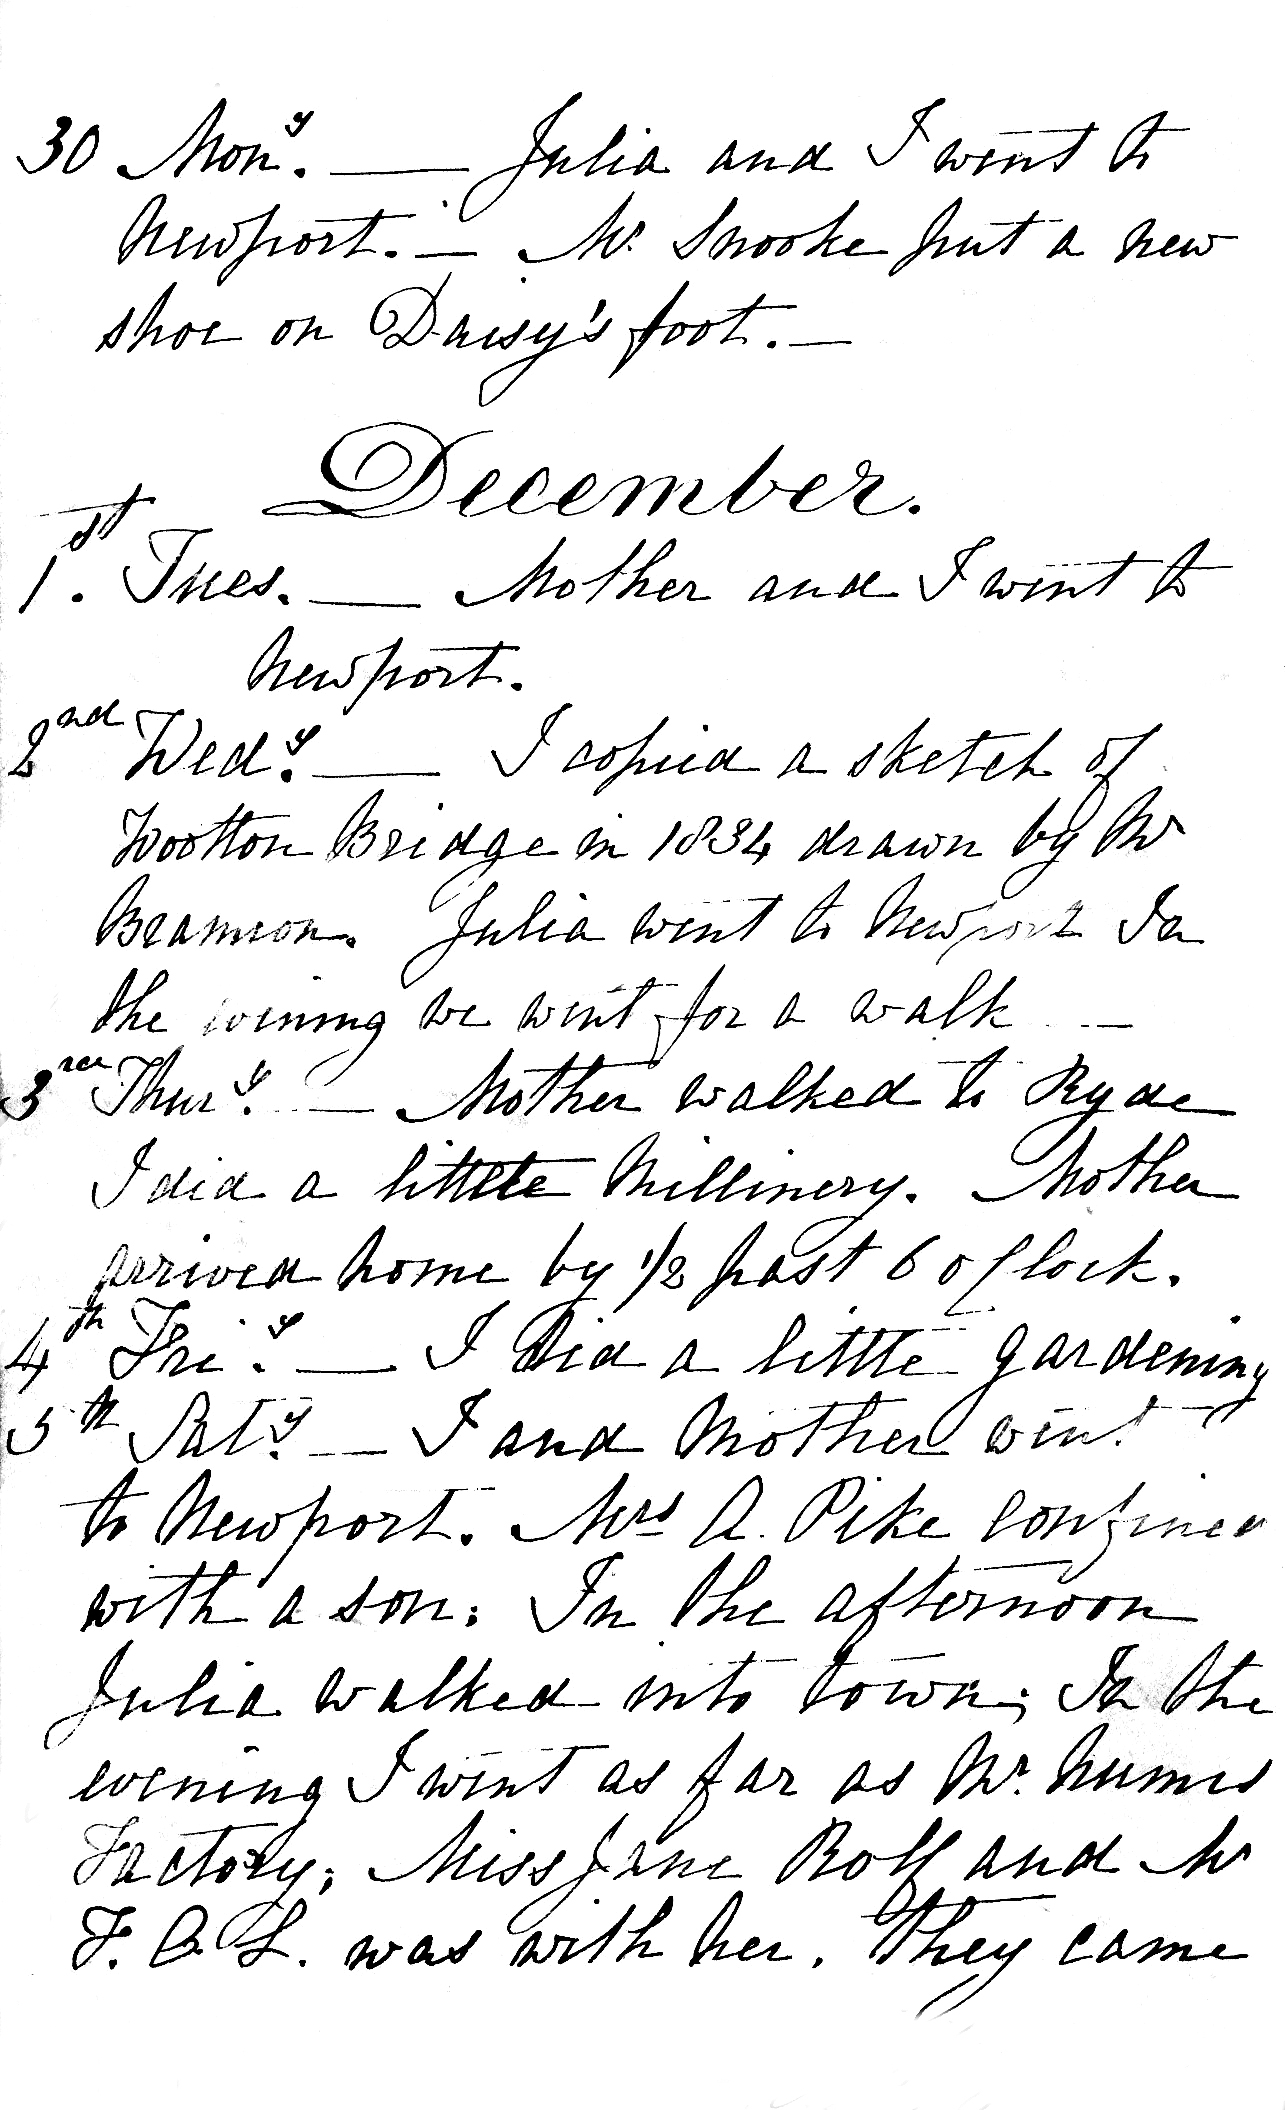 30 Mon.y — Julia and I went to
Newport. — Mr. Snooke put a new
shoe on Daisy's foot. —
December.
1st. Tues. — Mother and I went to
Newport.
2nd Wed.y — I copied a sketch of
Wootton Bridge in 1834 drawn by Mr
Brannon. Julia went to Newport In
the evening we went for a walk —
3rd Thur.y — Mother walked to Ryde
I did a little Millinery. Mother
arrived home by 1/2 past 6 o Clock.
4th Fri.y — I Did a little gardening
5th Sat.y — I and Mother went
to Newport. Mrs A. Pike confined
with a son. In the afternoon
Julia walked into town; In the
evening I went as far as Mr.
Factory; Miss Jane Rolf and Mr
F. L. was with her. They came